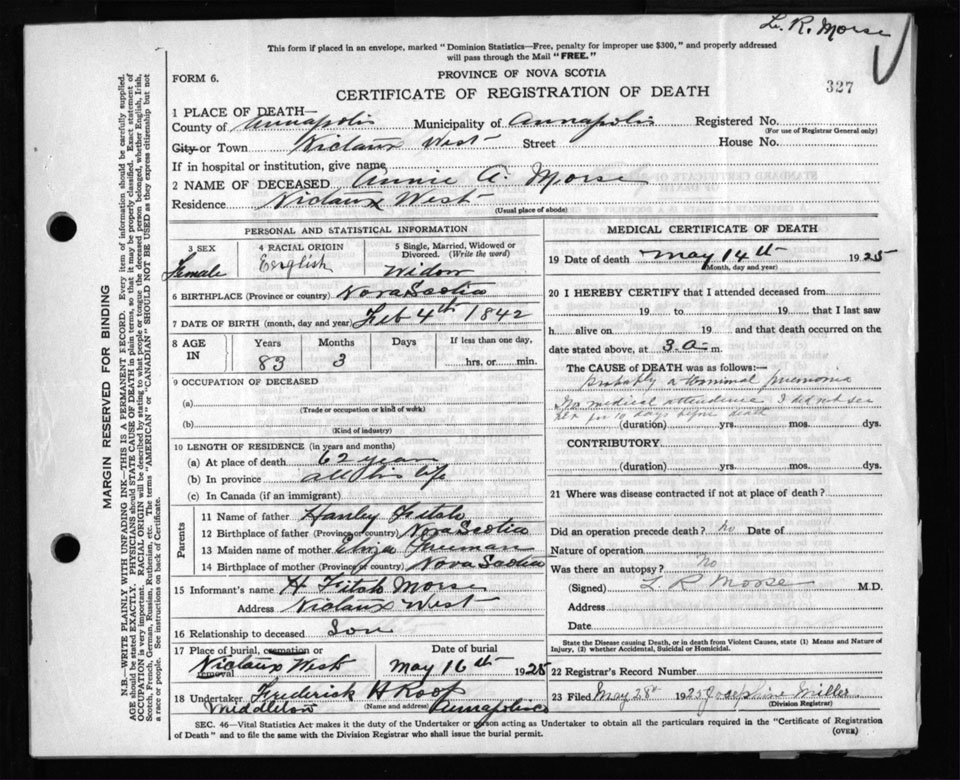 L. R. Morse
This form if placed in an envelope, marked "Dominion Statistics—Free, penalty for improper use $300," and properly addressed
will pass through the Mail "FREE."
FORM 6.
PROVINCE OF NOVA SCOTIA
CERTIFICATE OF REGISTRATION OF DEATH
327
1 PLACE OF DEATH—
County of Annapolis Municipality of Annapolis Registered No.
(For use of Registrar General only)
City or Town Nictaux West Street House No.
If in hospital or institution, give name
2 NAME OF DECEASED Annie A. Morse
Residence Nictaux West
(Usual place of abode)
PERSONAL AND STATISTICAL INFORMATION
3 SEX 4 RACIAL ORIGIN 5 Single, Married, Widowed or
Divorced. (Write the word)
Female English Widow
6 BIRTHPLACE (Province or country) Nova Scotia
7 DATE OF BIRTH (month, day and year) Feb 4th 1842
8 AGE IN Years Months Days If less than one day,
83 3 hrs. or min.
9 OCCUPATION OF DECEASED
(a)
(Trade or occupation or kind of work)
(b)
(Kind of industry)
10 LENGTH OF RESIDENCE (in years and months)
(a) At place of death 62 years
(b) In province all his life
(c) In Canada (if an immigrant)
Parents
11 Name of father Hanley Fitch
12 Birthplace of father (Province or country) Nova Scotia
13 Maiden name of mother Eliza Freeman
14 Birthplace of mother (Province or country) Nova Scotia
15 Informant's name H Fitch Morse
Address Nictaux West
16 Relationship to deceased Son
17 Place of burial, cremation or removal Date of burial
Nictaux West May 16th 1925
18 Undertaker Frederick H Roop
(Name and address)
Middleton Annapolis co
MEDICAL CERTIFICATE OF DEATH
19 Date of death May 14th 1925
(Month, day and year)
20 I HEREBY CERTIFY that I attended deceased from
19 to 19 that I last saw
h alive on 19 and that death occurred on the
date stated above, at 3. a m.
The CAUSE OF DEATH was as follows:—
Probably a terminal pneumonia
No medical attendence I did not see
her for 10 days before death
(duration) yrs. mos. dys.
CONTRIBUTORY
(duration) yrs. mos. dys.
21 Where was disease contracted if not at place of death?
Did an operation precede death? No Date of
Nature of operation
Was there an autopsy? No
(Signed) L R Morse M.D.
Address
Date
State the Disease causing Death, or in death from Violent Causes, state (1) Means and Nature of
Injury, (2) whether Accidental, Suicidal or Homicidal.
22 Registrar's Record Number
23 Filed May 28th 1925 Josephine Miller
(Division Registrar)
SEC. 46—Vital Statistics Act makes it the duty of the Undertaker or person acting as Undertaker to obtain all the particulars required in the "Certificate of Registration
of Death" and to file the same with the Division Registrar who shall issue the burial permit. (OVER)
MARGIN RESERVED FOR BINDING
N.B.—WRITE PLAINLY WITH UNFADING INK—THIS IS A PERMANENT RECORD. Every item of information should be carefully supplied.
AGE should be stated EXACTLY. PHYSICIANS should STATE CAUSE OF DEATH in plain terms, so that it may be properly classified. Exact statement of
OCCUPATION is very important. RACIAL ORIGIN will be described by stating to what people or tongue the deceased person belonged, whether English, Irish,
Scotch, French, German, Russian, Ruthenian, etc. The terms "AMERICAN" or "CANADIAN" SHOULD NOT BE USED as they express citizenship but not
a race or people. See instructions on back of Certificate.